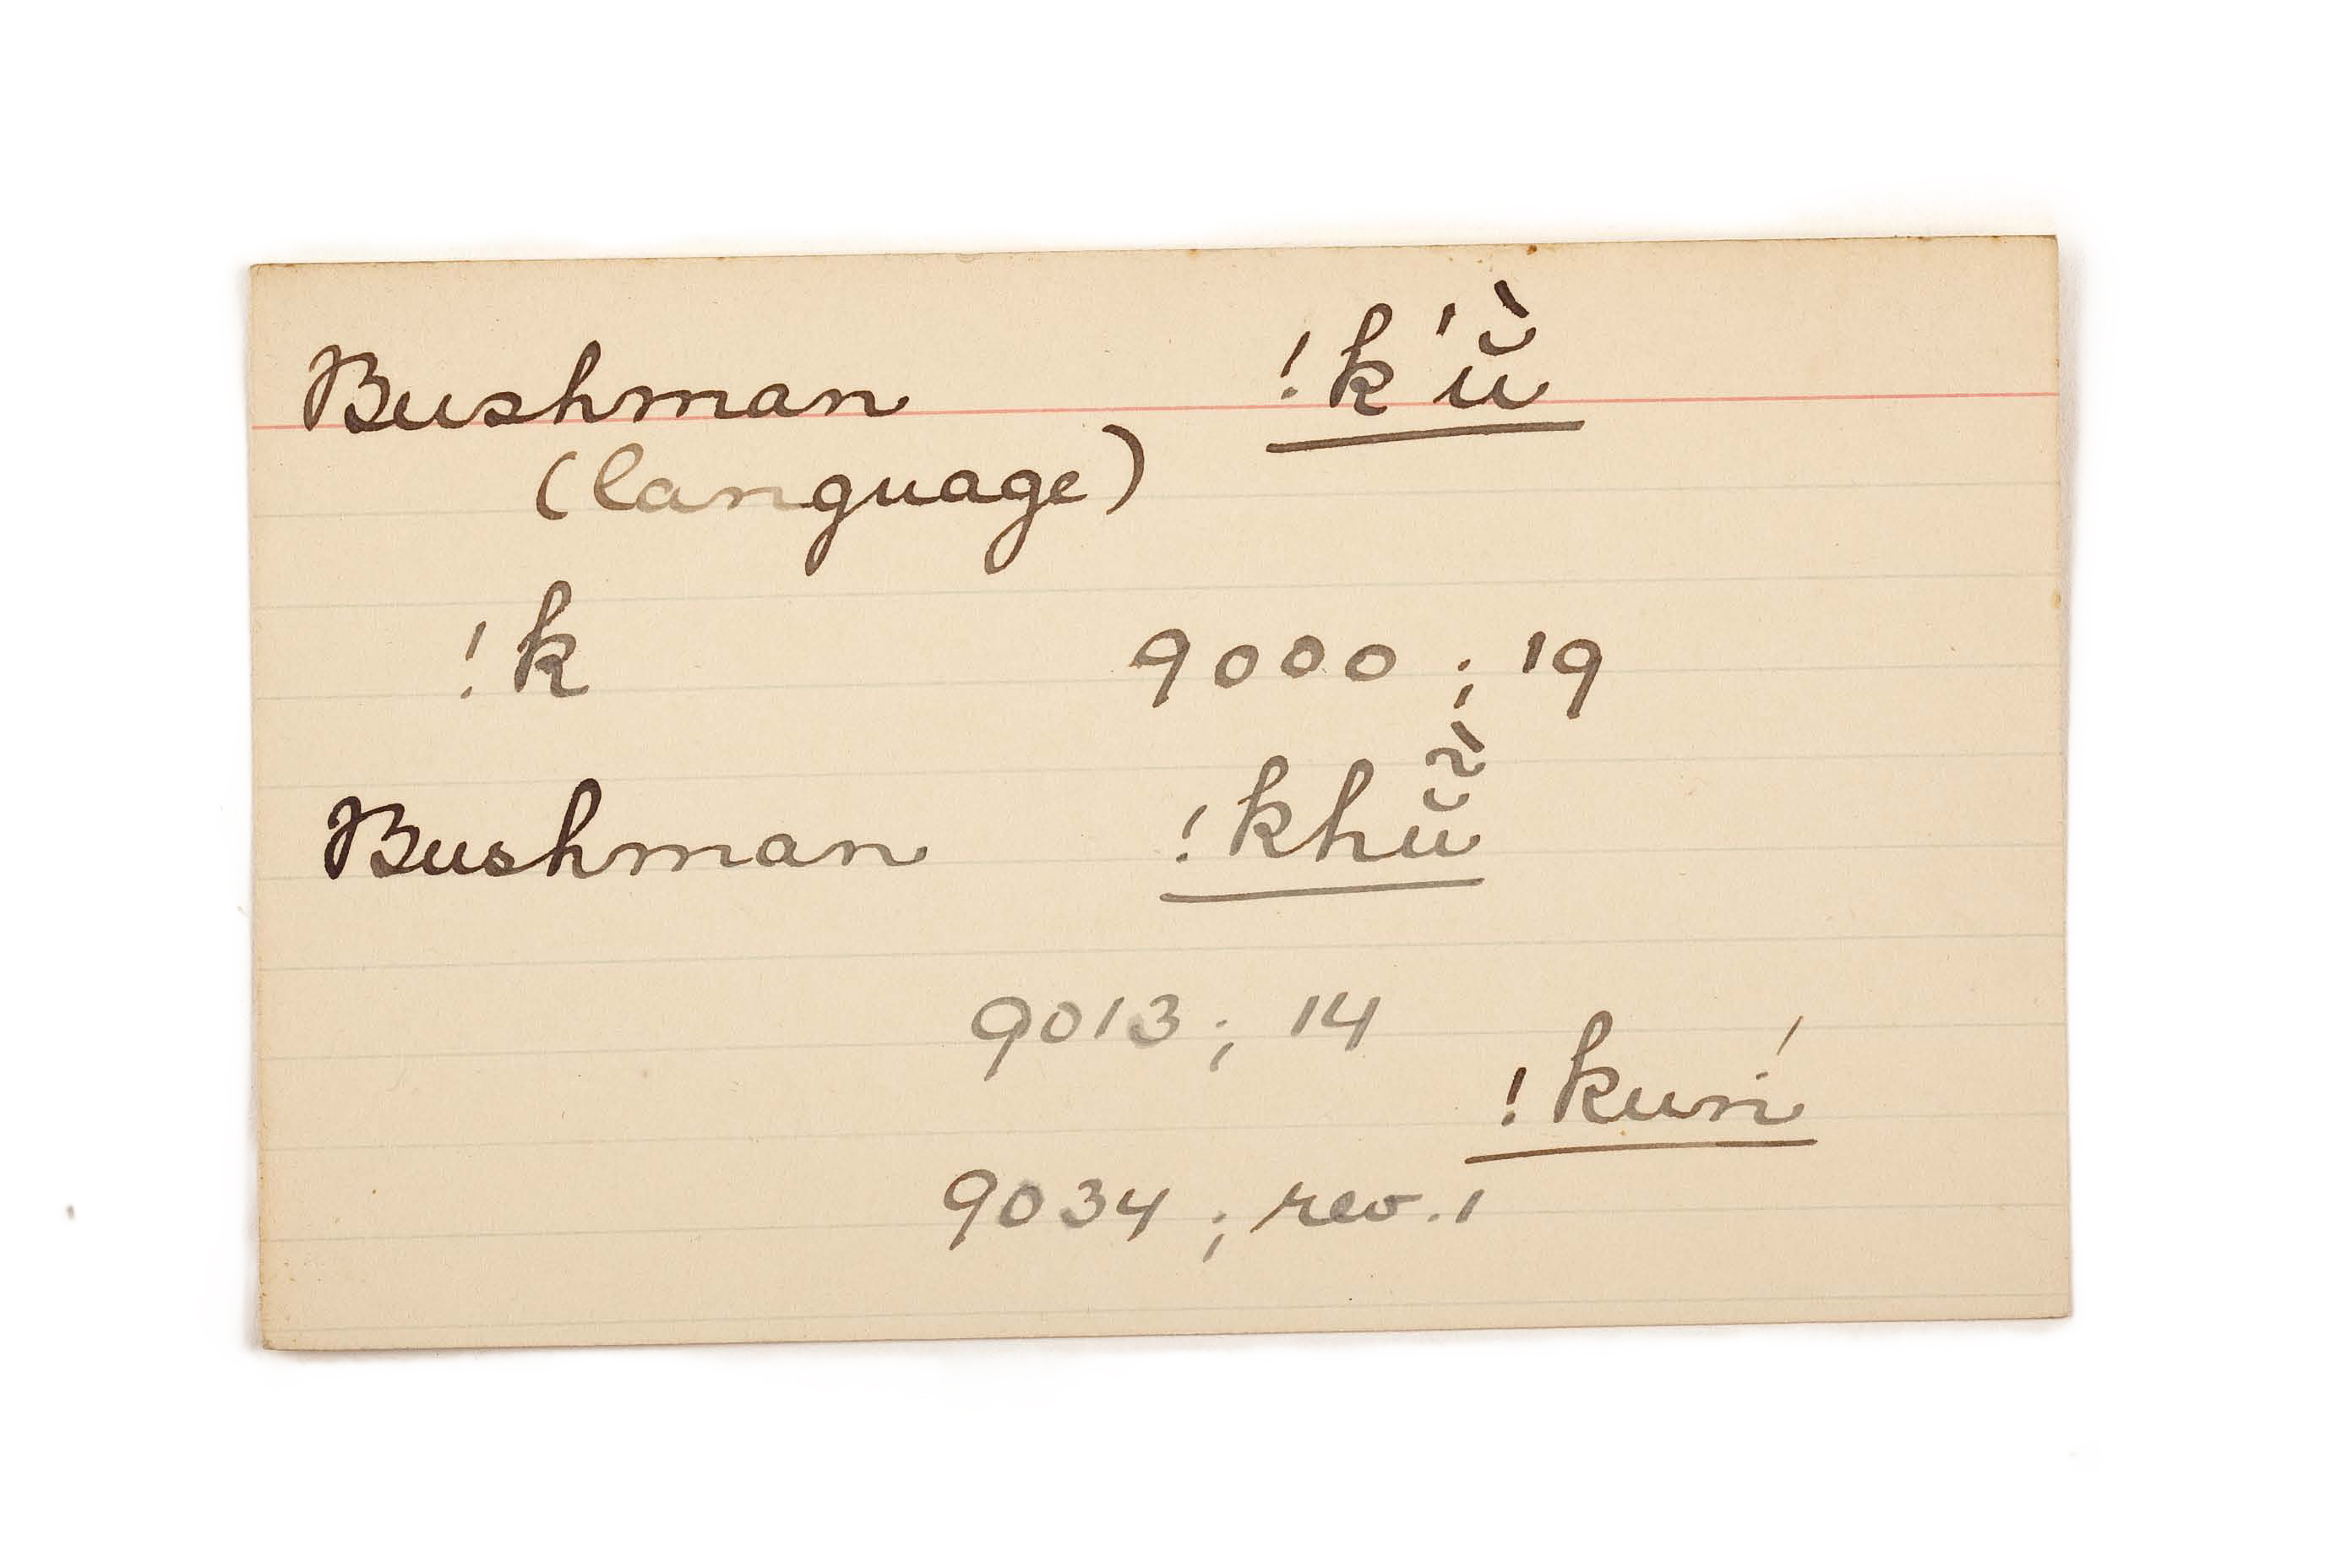 Bushman !k'ŭ̀
(language)
!k 9000 ; 19
Bushman !khŭ̃̀
9013 ; 14
!kuń
9034 ; rev. 1